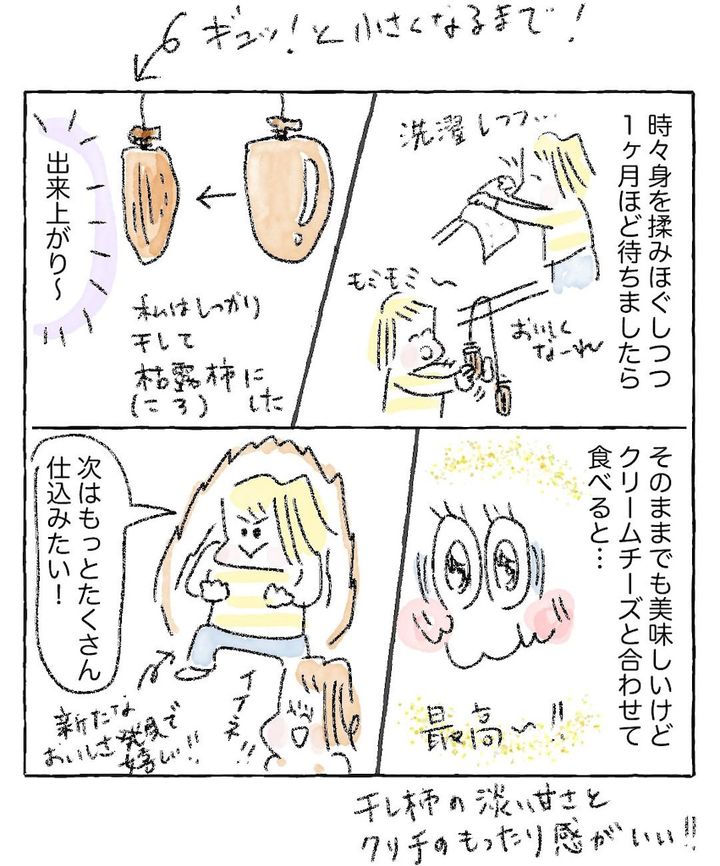 ギュッ!と小さくなるまで!
時々身を揉みほぐしつつ
1ヶ月ほど待ちましたら
洗濯しつつ…
モミモミ〜
おいしく
なーれ
出来上がり〜
私はしっかり
干して
枯露柿に
(ころ)した
そのままでも美味しいけど
クリームチーズと合わせて
食べると…
最高〜!!
次はもっとたくさん
仕込みたい!
新たな
おいしさ発見で
嬉しい!!
イイネ!!
干し柿の淡い甘さと
クリチのもったり感がいい!!